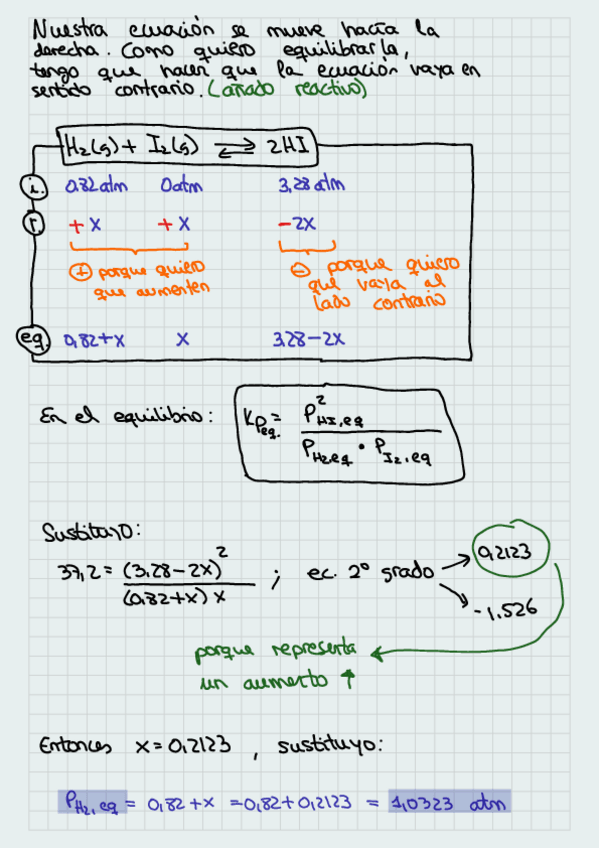 Nuestra ecuación se mueve hacia la
derecha. Como quiero equilibrarla,
tengo que hacer que la ecuación vaya en
sentido contrario. (añado reactivo)
H₂(g) + I₂(g) ⇄ 2HI
i. 0,82 atm 0 atm 3,28 atm
r + x + x - 2x
⊕ porque quiero
que aumenten
⊖ porque quiero
que vaya al
lado contrario
eq. 0,82+x x 3,28-2x
En el equilibrio: Kp eq. = P²HI,eq / PH₂,eq · PI₂,eq
Sustituyo:
37,2 = (3,28-2x)² / (0,82+x) x ; ec. 2º grado → 0,2123
→ -1,526
porque representa
un aumento ↑
Entonces x = 0,2123 , sustituyo:
PH₂,eq = 0,82+x = 0,82+0,2123 = 1,0323 atm